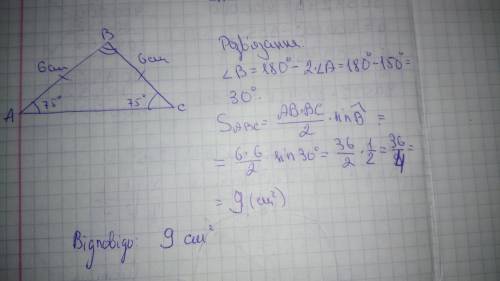 B
6см 6см
A 75° 75° C
Розв'язання.
∠B = 180° - 2·∠A = 180° - 150° =
30°.
S ABC = AB·BC/2 · sin B =
= 6·6/2 · sin 30° = 36/2 · 1/2 = 36/4 =
= 9 (см²)
Відповідь: 9 см²